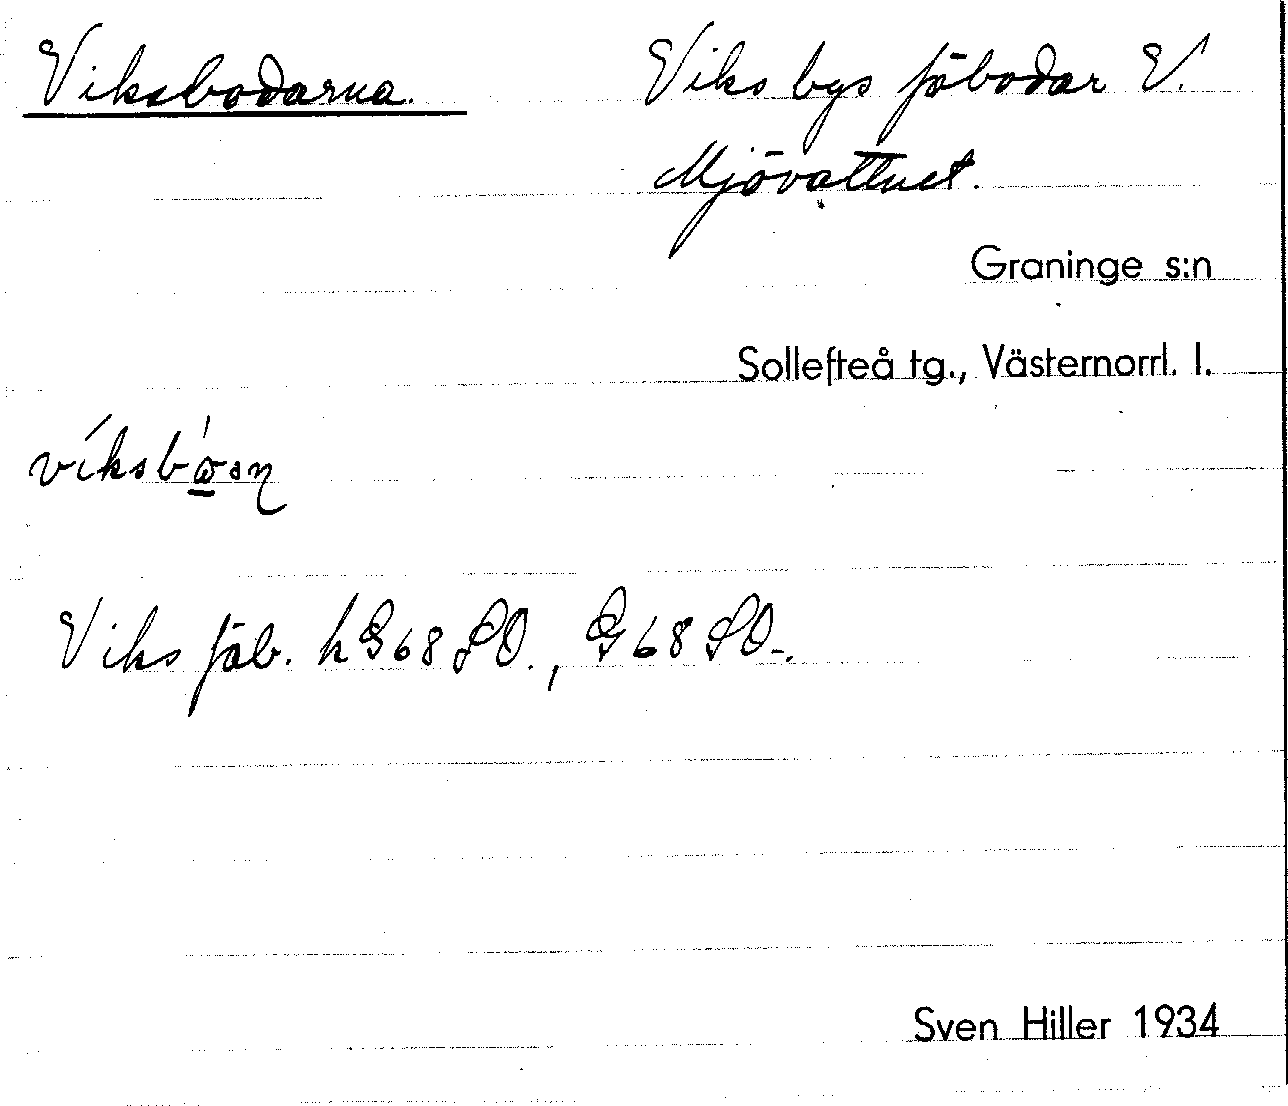 Viksbodarna. Viks bys fäbodar V.
Mjövattnet.
Graninge s:n
Sollefteå tg., Västernorrl. l.
Viks fäb. h G68SO., G68SO.
Sven Hiller 1934